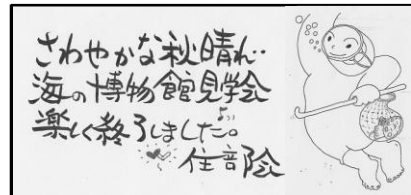 さわやかな秋晴れ‥
海の博物館見学会
楽しく終了しました。
住部会